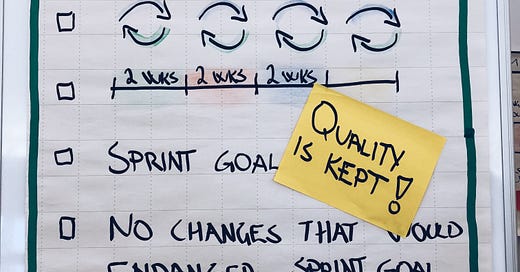 2 WKS 2 WKS 2 WKS
SPRINT GOAL
QUALITY
IS KEPT!
NO CHANGES THAT WOULD
ENDANGER SPRINT GOAL